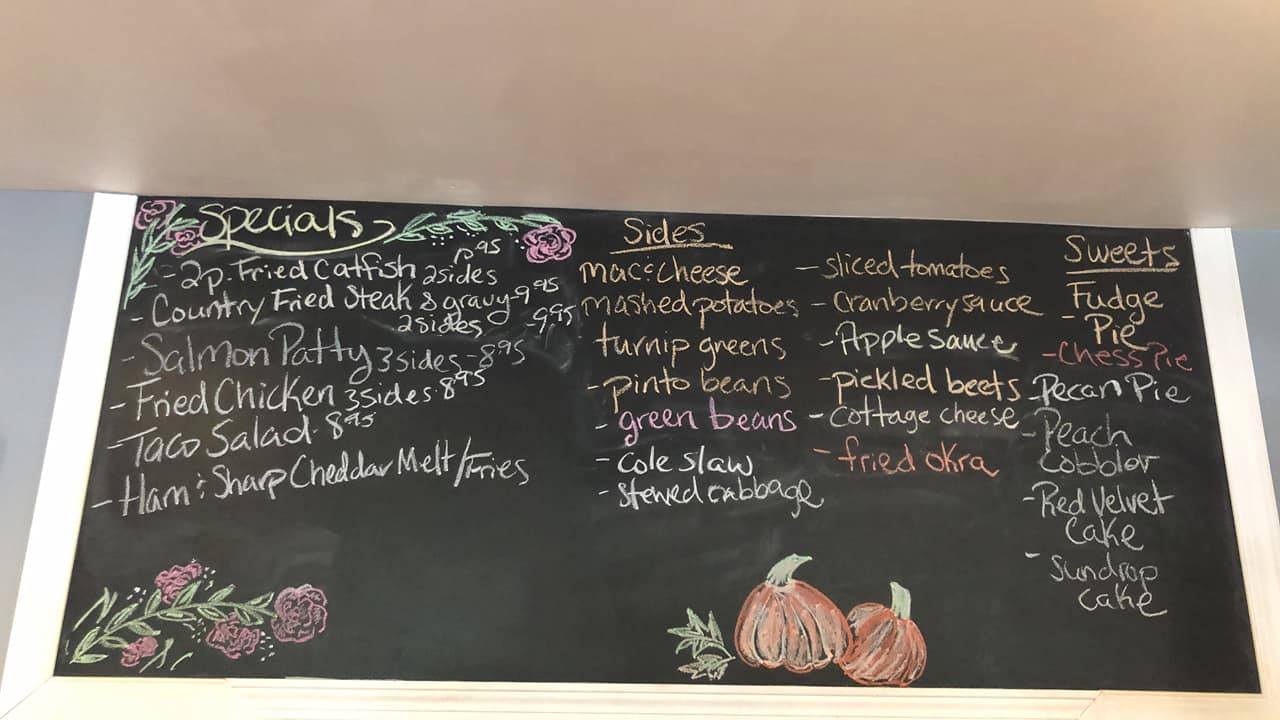 Specials
- 2p. Fried Catfish 2 sides
- Country Fried Steak & gravy - 9.95
2 sides - 9.95
- Salmon Patty 3 sides - 8.95
- Fried Chicken 3 sides - 8.95
- Taco Salad - 8.95
- Ham & Sharp Cheddar Melt/Fries
Sides
mac & cheese
mashed potatoes
turnip greens
- pinto beans
- green beans
- cole slaw
- stewed cabbage
- sliced tomatoes
- cranberry sauce
- Apple Sauce
- pickled beets
- Cottage cheese
- fried okra
Sweets
Fudge
- Pie
- Chess Pie
- Pecan Pie
- Peach
Cobbler
- Red Velvet
Cake
- Sundrop
Cake